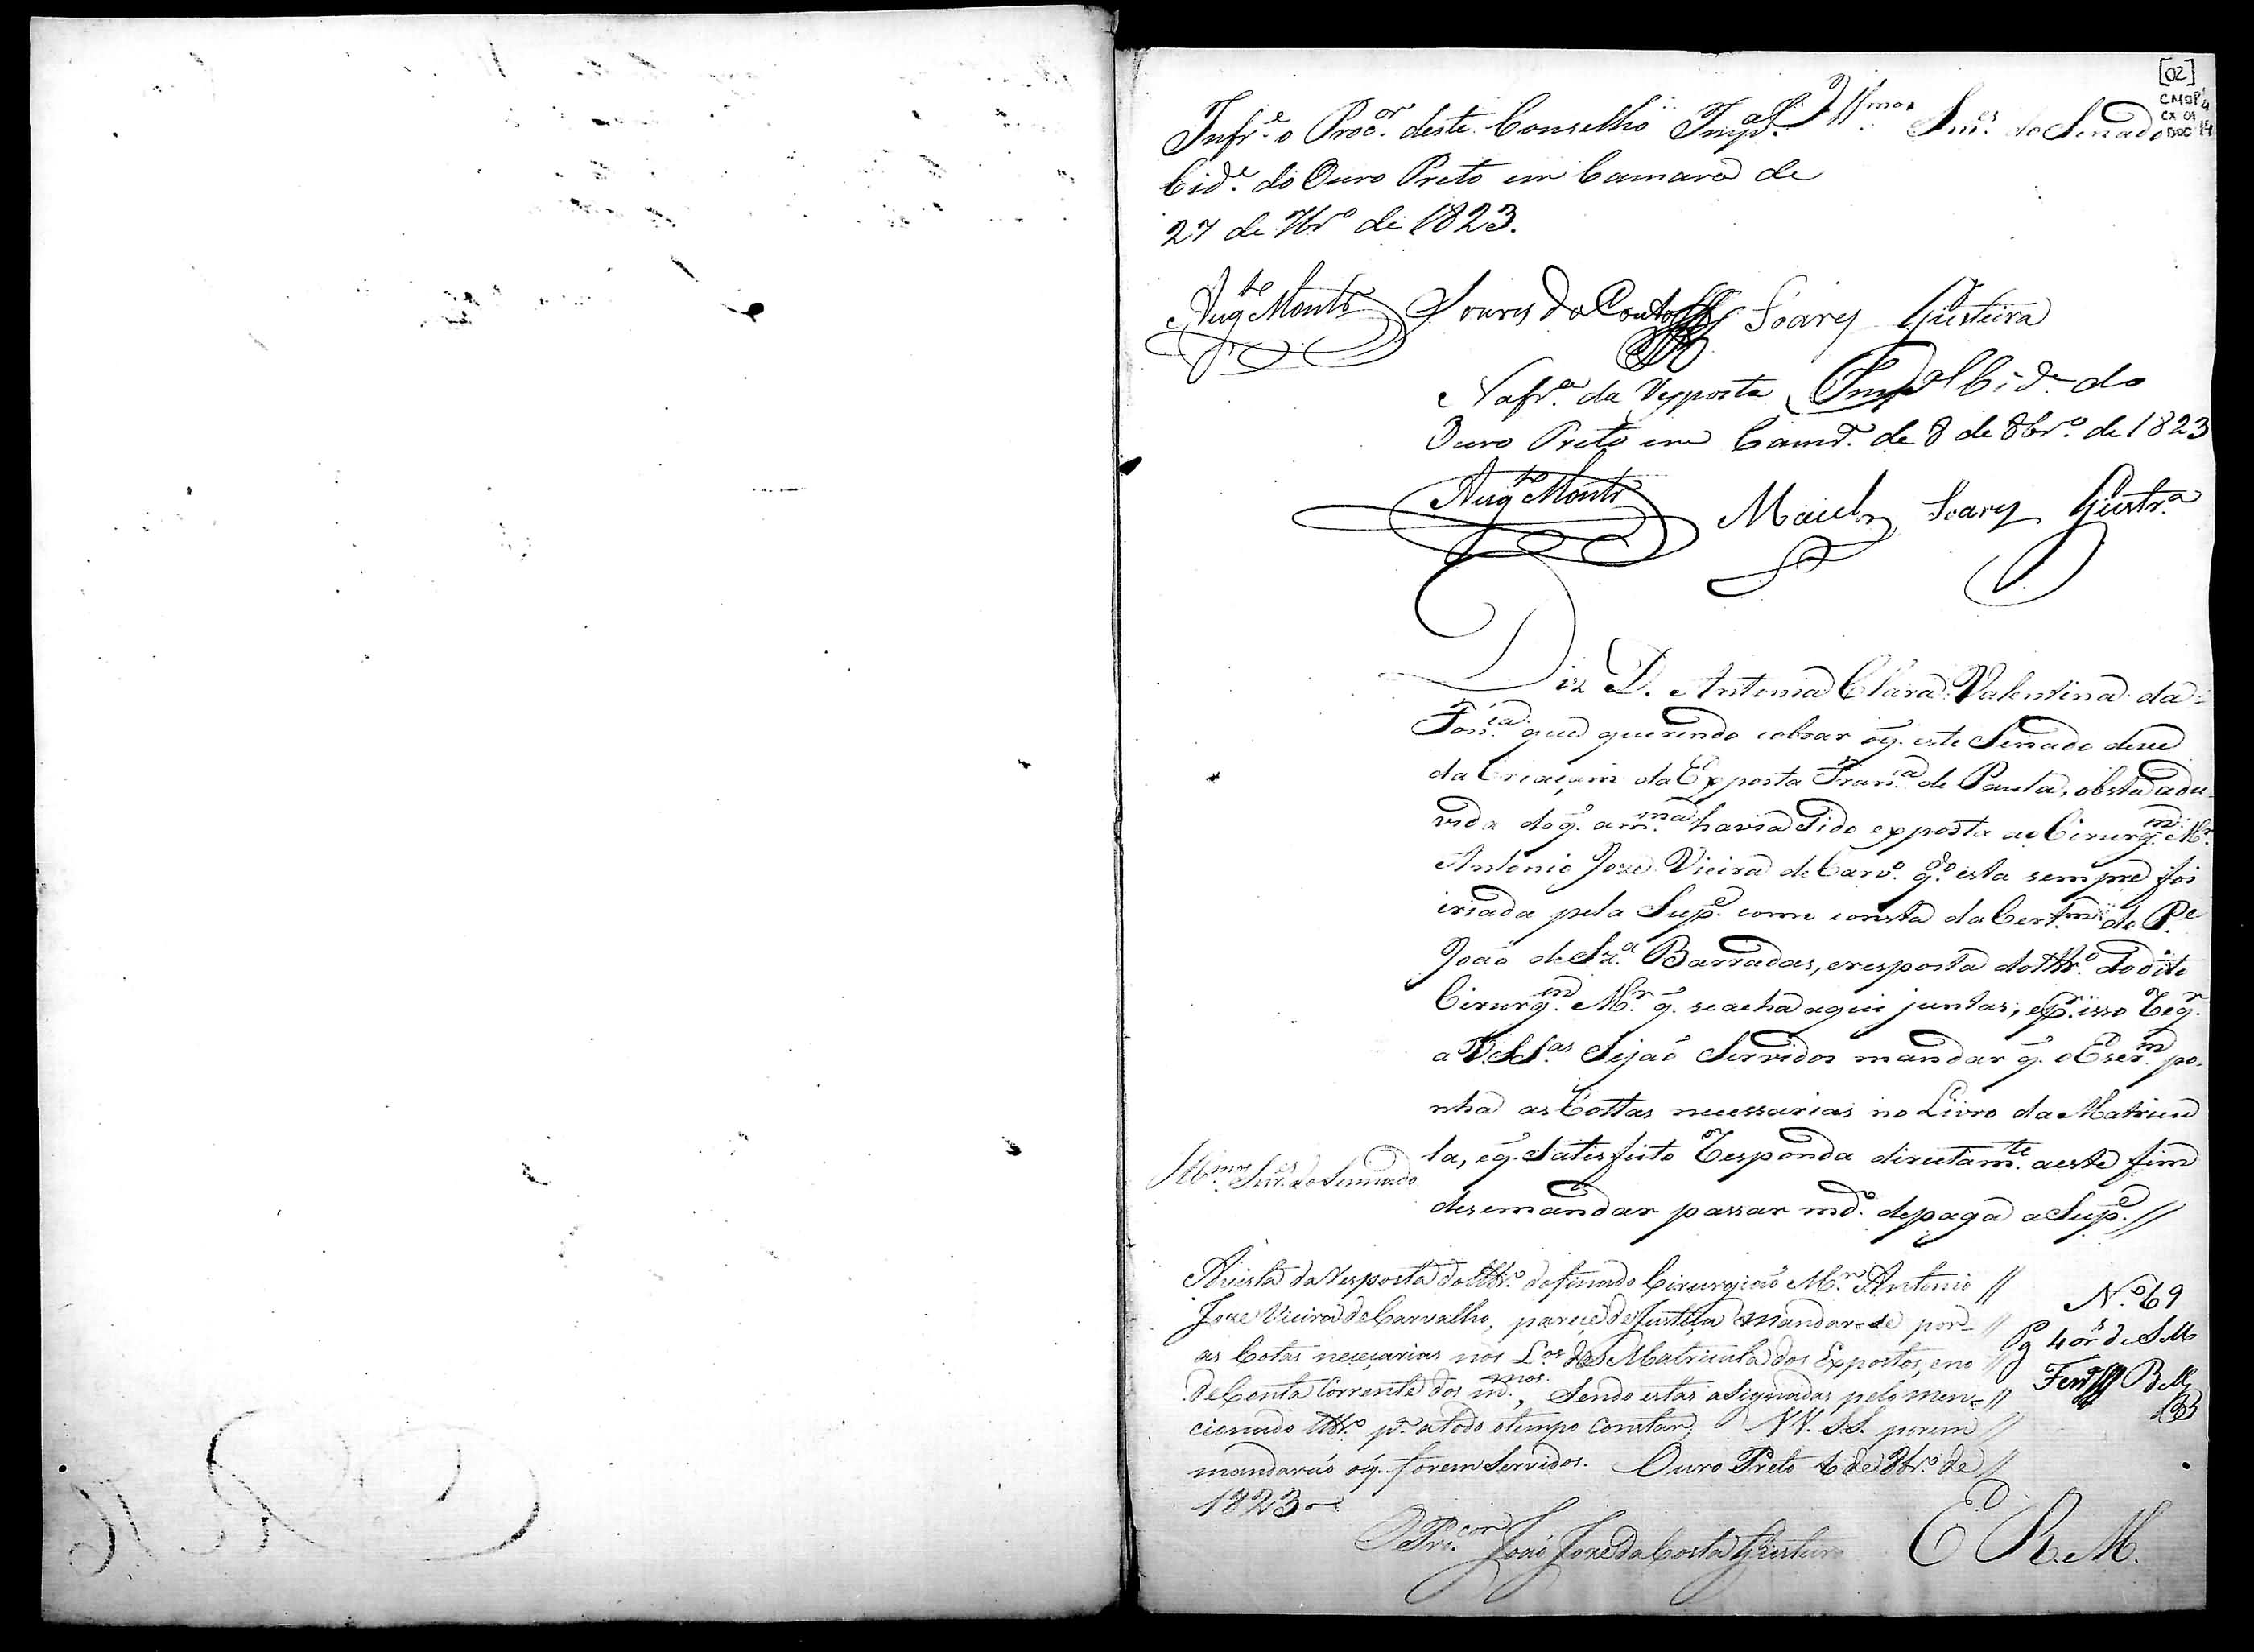 [02]
CMOP
CX 01
DOC 14
Infr.e o Proc.or deste Conselho Imp.al
Ill.mos Snr.es do Senado
Cid.e do Ouro Preto em Camara de
27 de 7br.o de 1823.
Aug.to Montr.o Soares Guisteira
Na fr.a da resposta Imp.al Cid.e do
Ouro Preto em Camr.a de 8 de 8br.o de 1823
Aug.to Montr.o Maciel Soares Guistr.a
Diz D. Antonia Clara Valentina da
Fon.ca que querendo cobrar o q. este Senado deve
da Criaçam da Exposta Fran.ca de Paula, obsta a du-
vida de q. a m.ma havia sido exposta ao Cirurg.m M.r
Antonio Joze Vieira de Carv.o q.do esta sempre foi
criada pela Sup.e como consta da Cert.m do P.e
João de Sz.a Barradas, e resposta do Ttr.o do dito
Cirurg.m M.r q. se acha aqui juntas, e p.r isso Req.r
a V. SS.as Sejaõ Servidos mandar q. o Escr.m po-
nha as Cottas necessarias no Livro da Matricu
la, e q. Satisfeito Responda directam.te a este fim
de se mandar passar md.o de paga a Sup.e //
Ill.mos Snr.es do Sennado
Avista da resposta do Ttr.o do finado Cirurgiaõ M.r Antonio //
Joze Vieira de Carvalho, pareçe de Justiça mandar-se por- //
as Cotas neceçarias nos L.os da Matricula dos Expostos, e no //
de Conta Corrente dos m.mos, Sendo estas asignadas pelo men- //
cionado Ttr.o p.a a todo o tempo constar; VV. SS. porem //
mandaráõ o q. forem Servidos. Ouro Preto 6 de 8br.o de //
1823
O Pro.cor João Joze da Costa Guisteira
N.o 69
Pg 4 or.s de SM
E. R. M.